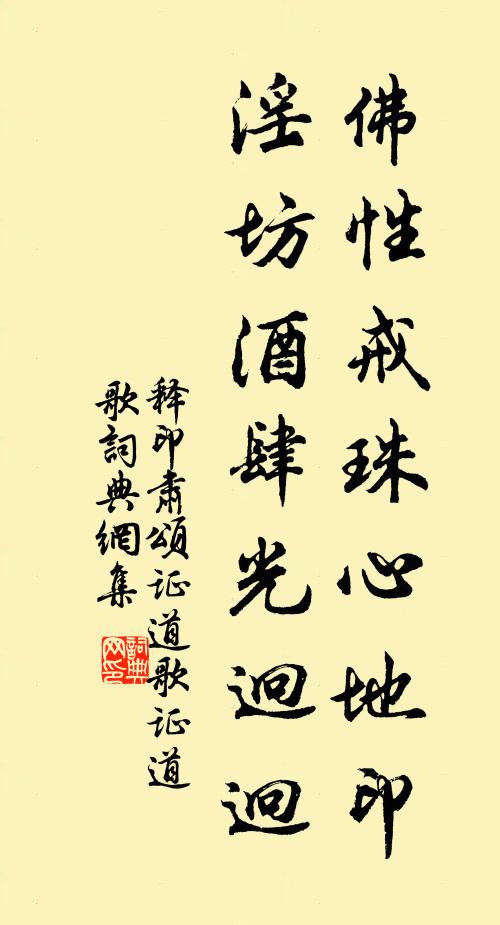 佛性戒珠心地印
淫坊酒肆光迴迴
释印肃頌证道歌证道
歌詞典網集
詞典
网印